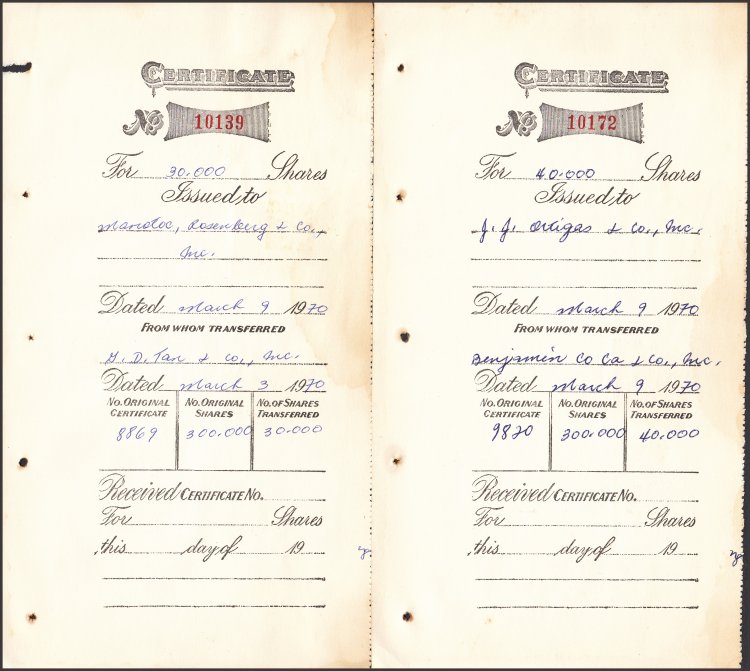 CERTIFICATE
No. 10139
For 30.000 Shares
Issued to
Marotoc, Rosenberg & Co.,
Inc.
Dated March 9 1970
FROM WHOM TRANSFERRED
G. D. Tan & Co., Inc.
Dated March 3 1970
No. ORIGINAL CERTIFICATE No. ORIGINAL SHARES No. OF SHARES TRANSFERRED
8869 300.000 30.000
Received CERTIFICATE No.
For Shares
this day of 19
CERTIFICATE
No. 10172
For 40.000 Shares
Issued to
J. J. Ortigas & Co., Inc.
Dated March 9 1970
FROM WHOM TRANSFERRED
Benjamin Co Ca & Co., Inc.
Dated March 9 1970
No. ORIGINAL CERTIFICATE No. ORIGINAL SHARES No. OF SHARES TRANSFERRED
9820 300.000 40.000
Received CERTIFICATE No.
For Shares
this day of 19